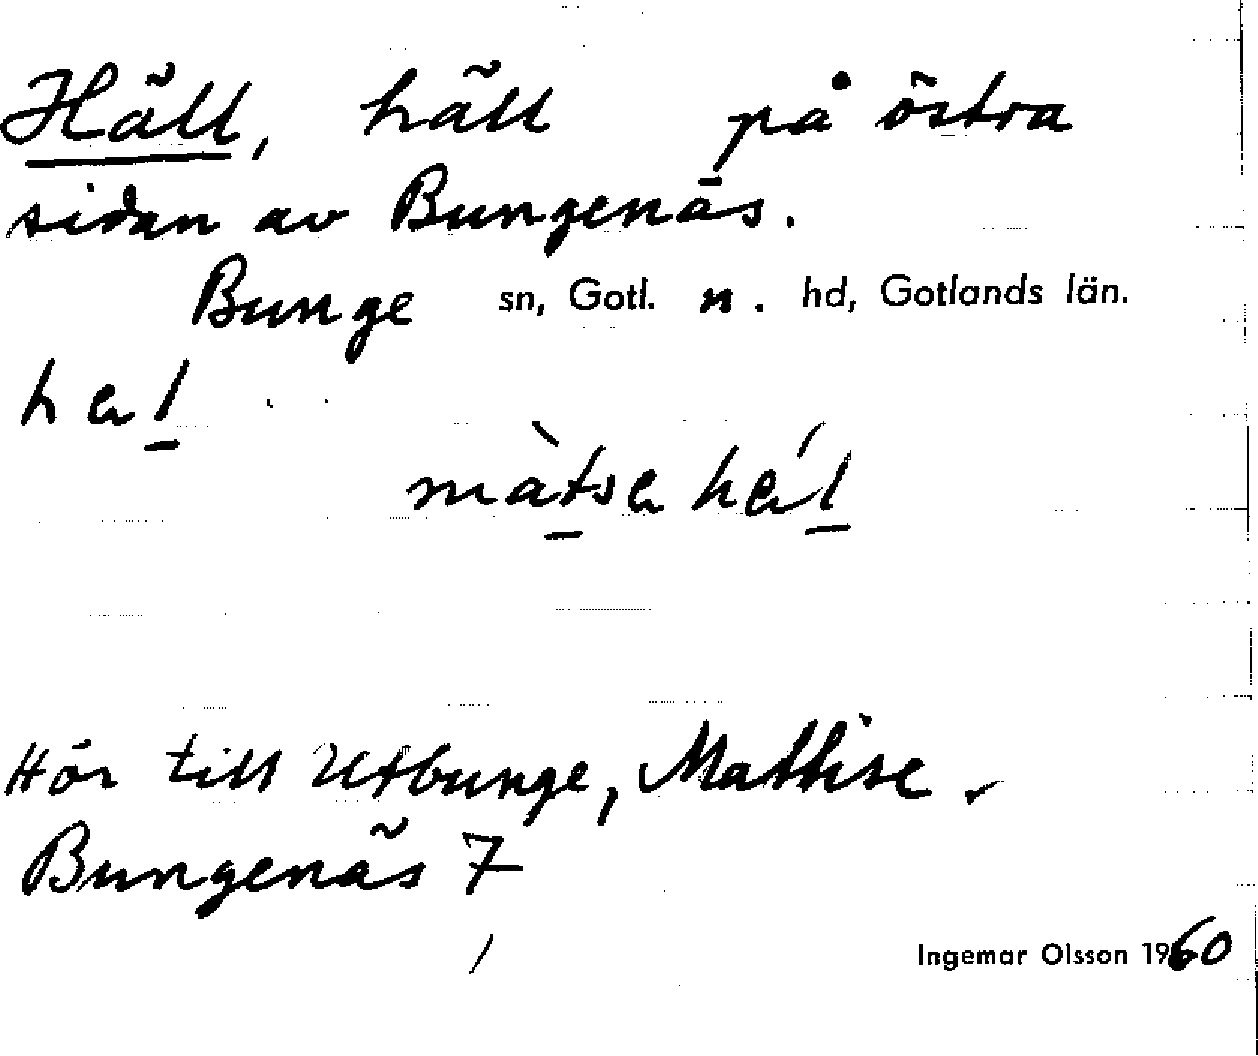 Häll, häll på östra
sidan av Bungenäs.
Bunge sn, Gotl. n. hd, Gotlands län.
hal
màtsa hál
Hör till Utbunge, Mattise.
Bungenäs 7
Ingemar Olsson 1960